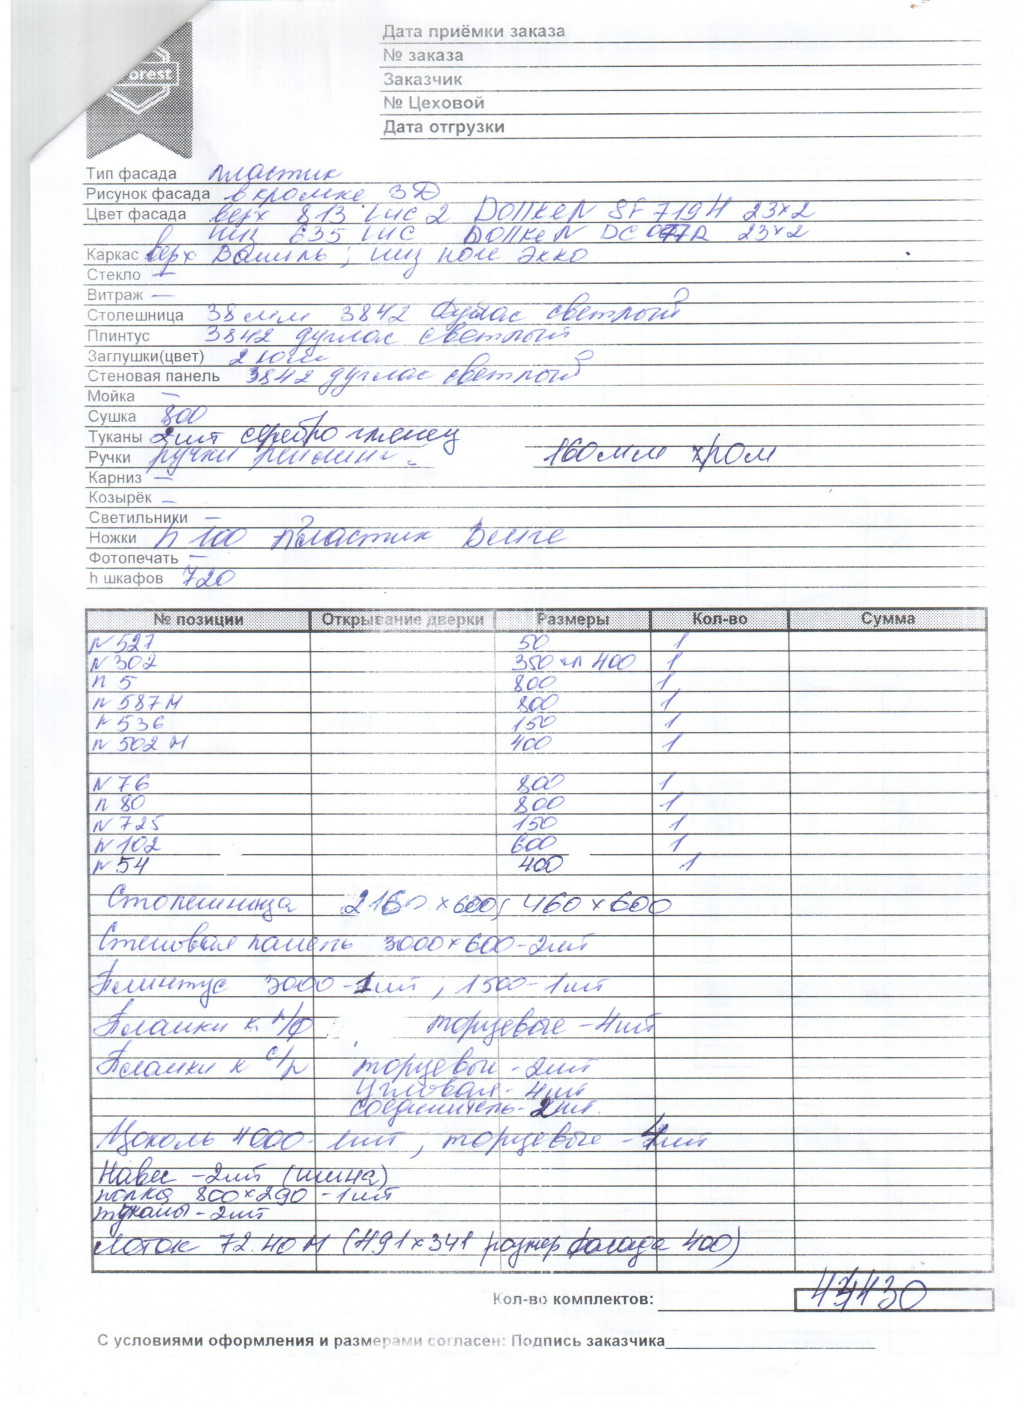 orest
Дата приёмки заказа
№ заказа
Заказчик
№ Цеховой
Дата отгрузки
Тип фасада пластик
Рисунок фасада в кромке 3Д
Цвет фасада верх 813 Lис 2 DOллKeN SF 719H 23х2
низ 635 Lис DOллKeN DC 23х2
Каркас верх Ваниль; низ ноче Экко
Стекло —
Витраж —
Столешница 38мм 3842 дуглас светлый
Плинтус 3842 дуглас светлый
Заглушки(цвет)
Стеновая панель 3842 дуглас светлый
Мойка —
Сушка 800
Туканы 2шт серебро глянец
Ручки ручки рейлинг 160мм хром
Карниз —
Козырёк —
Светильники —
Ножки h 100 пластик Венге
Фотопечать —
h шкафов 720
№ позиции Открывание дверки Размеры Кол-во Сумма
N 527 50 1
N 302 350 400 1
п 5 800 1
N 587М 800 1
N 536 150 1
N 502 М 400 1
N 76 800 1
п 80 800 1
N 725 150 1
N 102 600 1
N 54 400 1
Столешница 2160 х 600; 460 х 600
Стеновая панель 3000х600-2шт
Плинтус 3000-1шт, 1500-1шт
Планки к п/ф торцевые -4шт
Планки к с/п торцевые - 2шт
угловая - 4шт
соединитель- 2шт.
Цоколь 4000- 1шт, торцевые -4шт
Навес -2шт (шина)
полка 800х290 -1шт
туканы-2шт
Лоток 72.40М (491х341 размер фасада 400)
Кол-во комплектов:
С условиями оформления и размерами согласен: Подпись заказчика